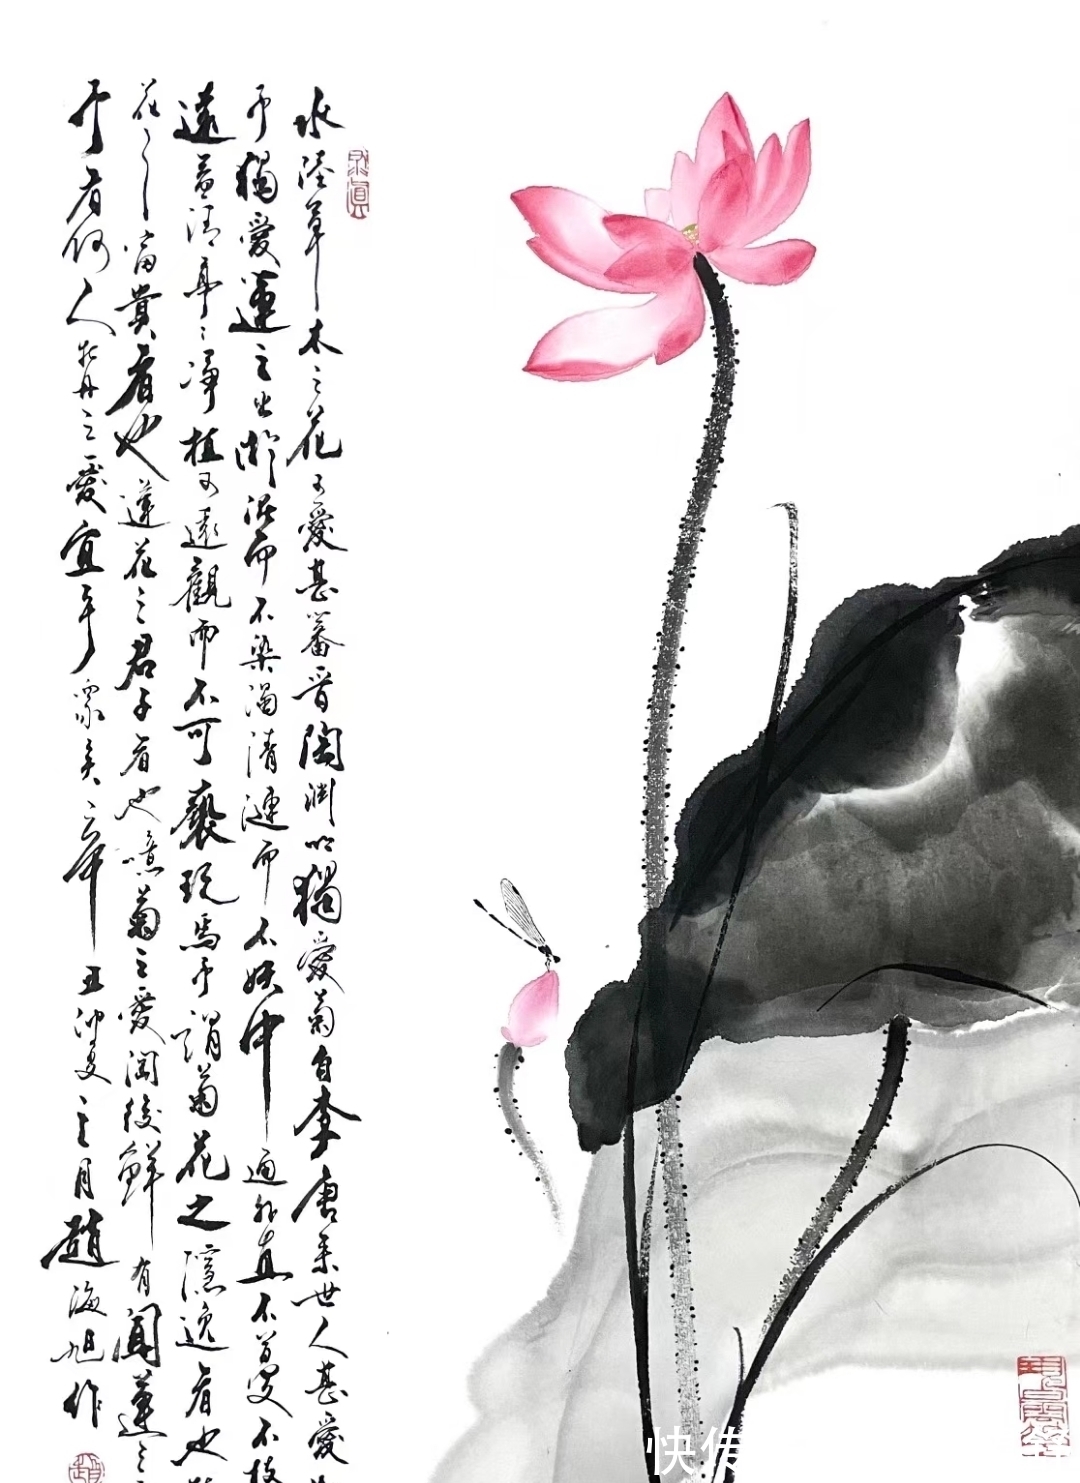 水陸草木之花可愛甚蕃晋陶渊明獨愛菊自李唐来世人甚愛
予獨愛蓮之出淤泥而不染濯清漣而不妖中通外直不蔓不枝
遠益清亭々淨植可遠觀而不可褻玩焉予謂菊花之隱逸者也
花之富貴者也蓮花之君子者也噫菊之愛陶後鮮有聞蓮之
予者何人牡丹之愛宜乎衆矣辛丑仲夏之月趙海旭作
快传